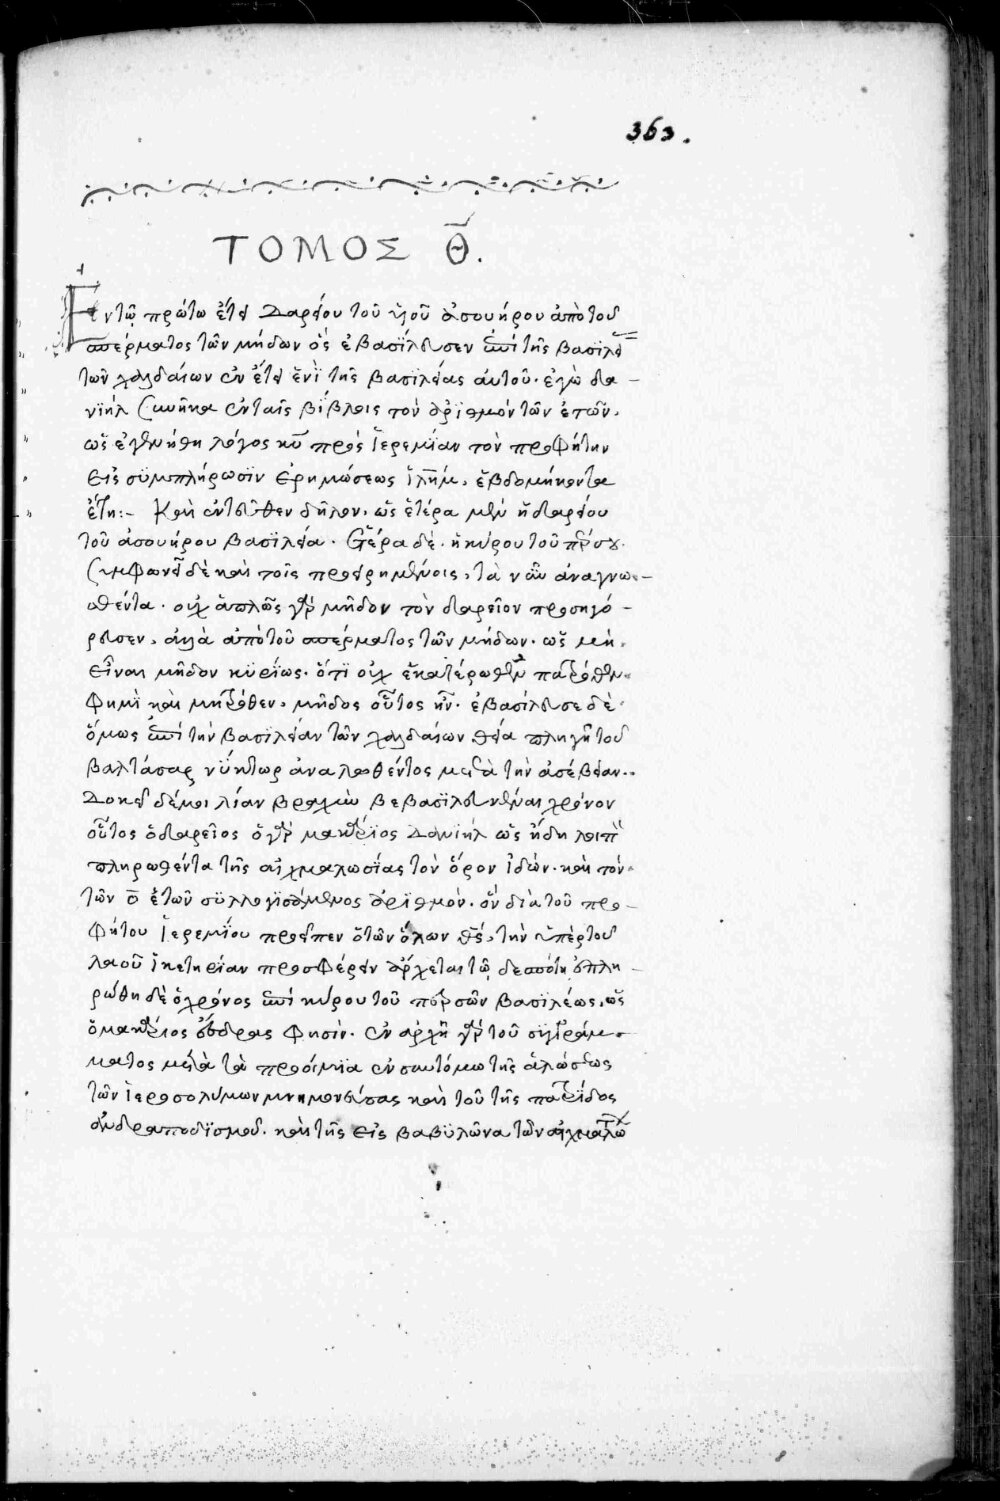 363.
ΤΟΜΟΣ Θ̅.
Ἐν τῷ πρώτω ἔτει Δαρείου τοῦ ὑιοῦ ἀσουήρου ἀπὸ τοῦ
σπέρματος τῶν μήδων ὃς ἐβασίλευσεν ἐπὶ τῆς βασιλεί
τῶν χαλδαίων ἐν ἔτει ἑνὶ τῆς βασιλείας ἀυτοῦ· ἐγὼ δα-
νιὴλ συνῆκα ἐν ταῖς βίβλοις τὸν ἀριθμὸν τῶν ἐτῶν,
ὡς ἐγενήθη λόγος κῦ πρὸς ἱερεμίαν τὸν προφήτην
εἰς συμπλήρωσιν ἐρημώσεως ἱλῆμ, ἑβδομήκοντα
ἔτη:- Καὶ ἐντεῦθεν δῆλον, ὡς ἑτέρα μὲν ἡ δαρείου
τοῦ ἀσουήρου βασιλεία· ἑτέρα δὲ ἡ κύρου τοῦ πέρσου·
συμφωνεῖ δὲ καὶ τοῖς προειρημένοις, τὰ νῦν ἀναγνω-
σθέντα· οὐχ ἁπλῶς γὰρ μῆδον τὸν δαρεῖον προσηγό-
ρευσεν, ἀλλὰ ἀπὸ τοῦ σπέρματος τῶν μήδων· ὡς μὴ
εἶναι μῆδον κυρίως· ὅτι οὐχ ἑκατέρωθεν πατρόθεν
φημὶ καὶ μητρόθεν, μῆδος οὗτος ἦν· ἐβασίλευσε δὲ
ὅμως ἐπὶ τὴν βασιλείαν τῶν χαλδαίων θεία πληγῆ τοῦ
βαλτάσαρ νύκτωρ ἀναλωθέντος μετὰ τὴν ἀσέβειαν·
Δοκεῖ δέ μοι λίαν βραχὺν βεβασιλευκέναι χρόνον
οὗτος ὁ δαρεῖος ὁ γὰρ μακάριος Δανιὴλ ὡς ἤδη λοιπὸν
πληρωθέντα τῆς αἰχμαλωσίας τὸν ὅρον ἰδὼν· καὶ τὸν
τῶν ο̅ ἐτῶν συλλογισάμενος ἀριθμὸν· ὃν διὰ τοῦ προ-
φήτου ἱερεμίου προεῖπεν ὁ τῶν ὅλων θσ, τὴν ὑπὲρ τοῦ
λαοῦ ἱκετηρίαν προσφέρειν ἄρχεται τῷ δεσπότη, ἐπλη-
ρώθη δὲ ὁ χρόνος ἐπὶ κύρου τοῦ περσῶν βασιλέως, ὡς
ὁ μακάριος ἔσδρας φησὶν· ἐν ἀρχῆ γὰρ τοῦ συγγράμ-
ματος μετὰ τὰ προοίμια ἐν συντόμω τῆς ἁλώσεως
τῶν ἱεροσολύμων μνημονεύσας καὶ τοῦ τῆς πατρίδος
ἀνδραποδισμοῦ· καὶ τῆς εἰς βαβυλῶνα τῶν αἰχμαλώ